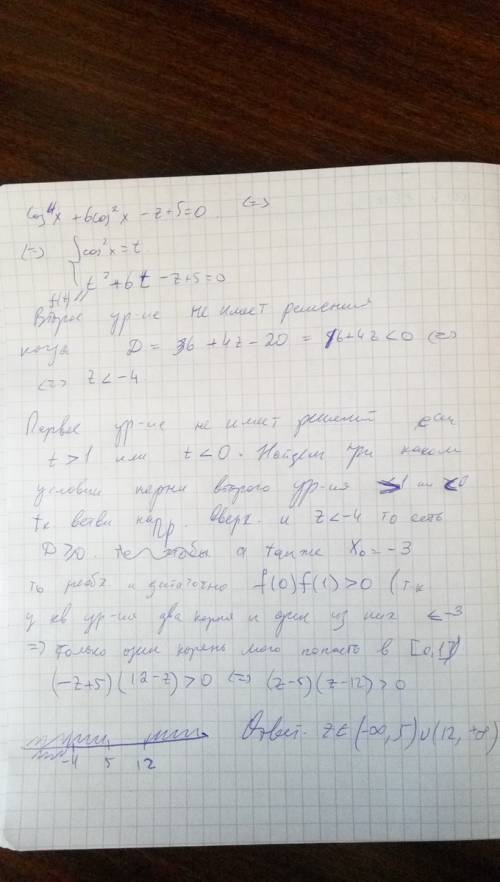 cos⁴x + 6cos²x − z + 5 = 0 (=)
(=) { cos²x = t
t² + 6t − z + 5 = 0
f(t)
Второе ур-ие не имеет решения
когда D = 36 + 4z − 20 = 16 + 4z < 0 (=)
(=) z < −4
Первое ур-ие не имеет решений если
t > 1 или t < 0. Найдем при каком
условии корни второго ур-ия >1 или <0
тк ветви напр. вверх. и z < −4 то есть
D ≥ 0. а также x₀ = −3
то необх. и достаточно f(0)f(1) > 0 (тк
у кв ур-ия два корня и один из них < −3
=> только один корень может попасть в [0,1])
(−z+5)(12−z) > 0 (=) (z−5)(z−12) > 0
−4 5 12 Ответ. z ∈ (−∞, 5) ∪ (12, +∞)